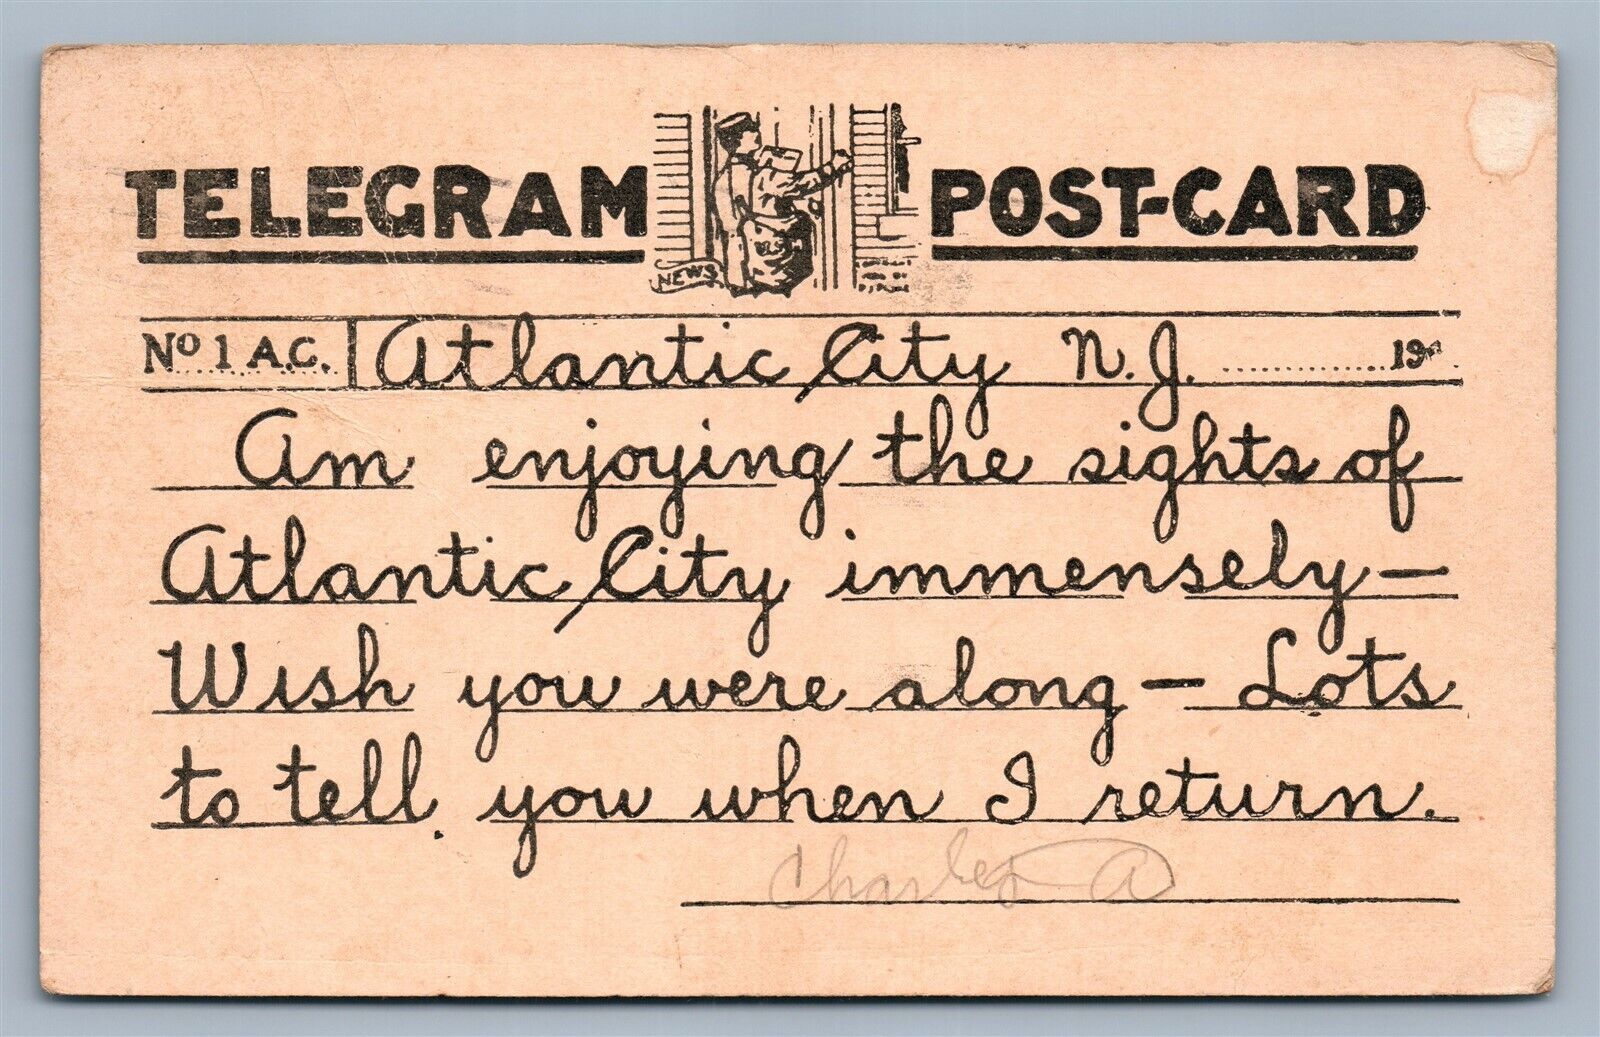 TELEGRAM POST-CARD
NEWS
U.S.
No 1 A.C. Atlantic City N.J. 19
Am enjoying the sights of
Atlantic City immensely—
Wish you were along — Lots
to tell you when I return.
Charles A